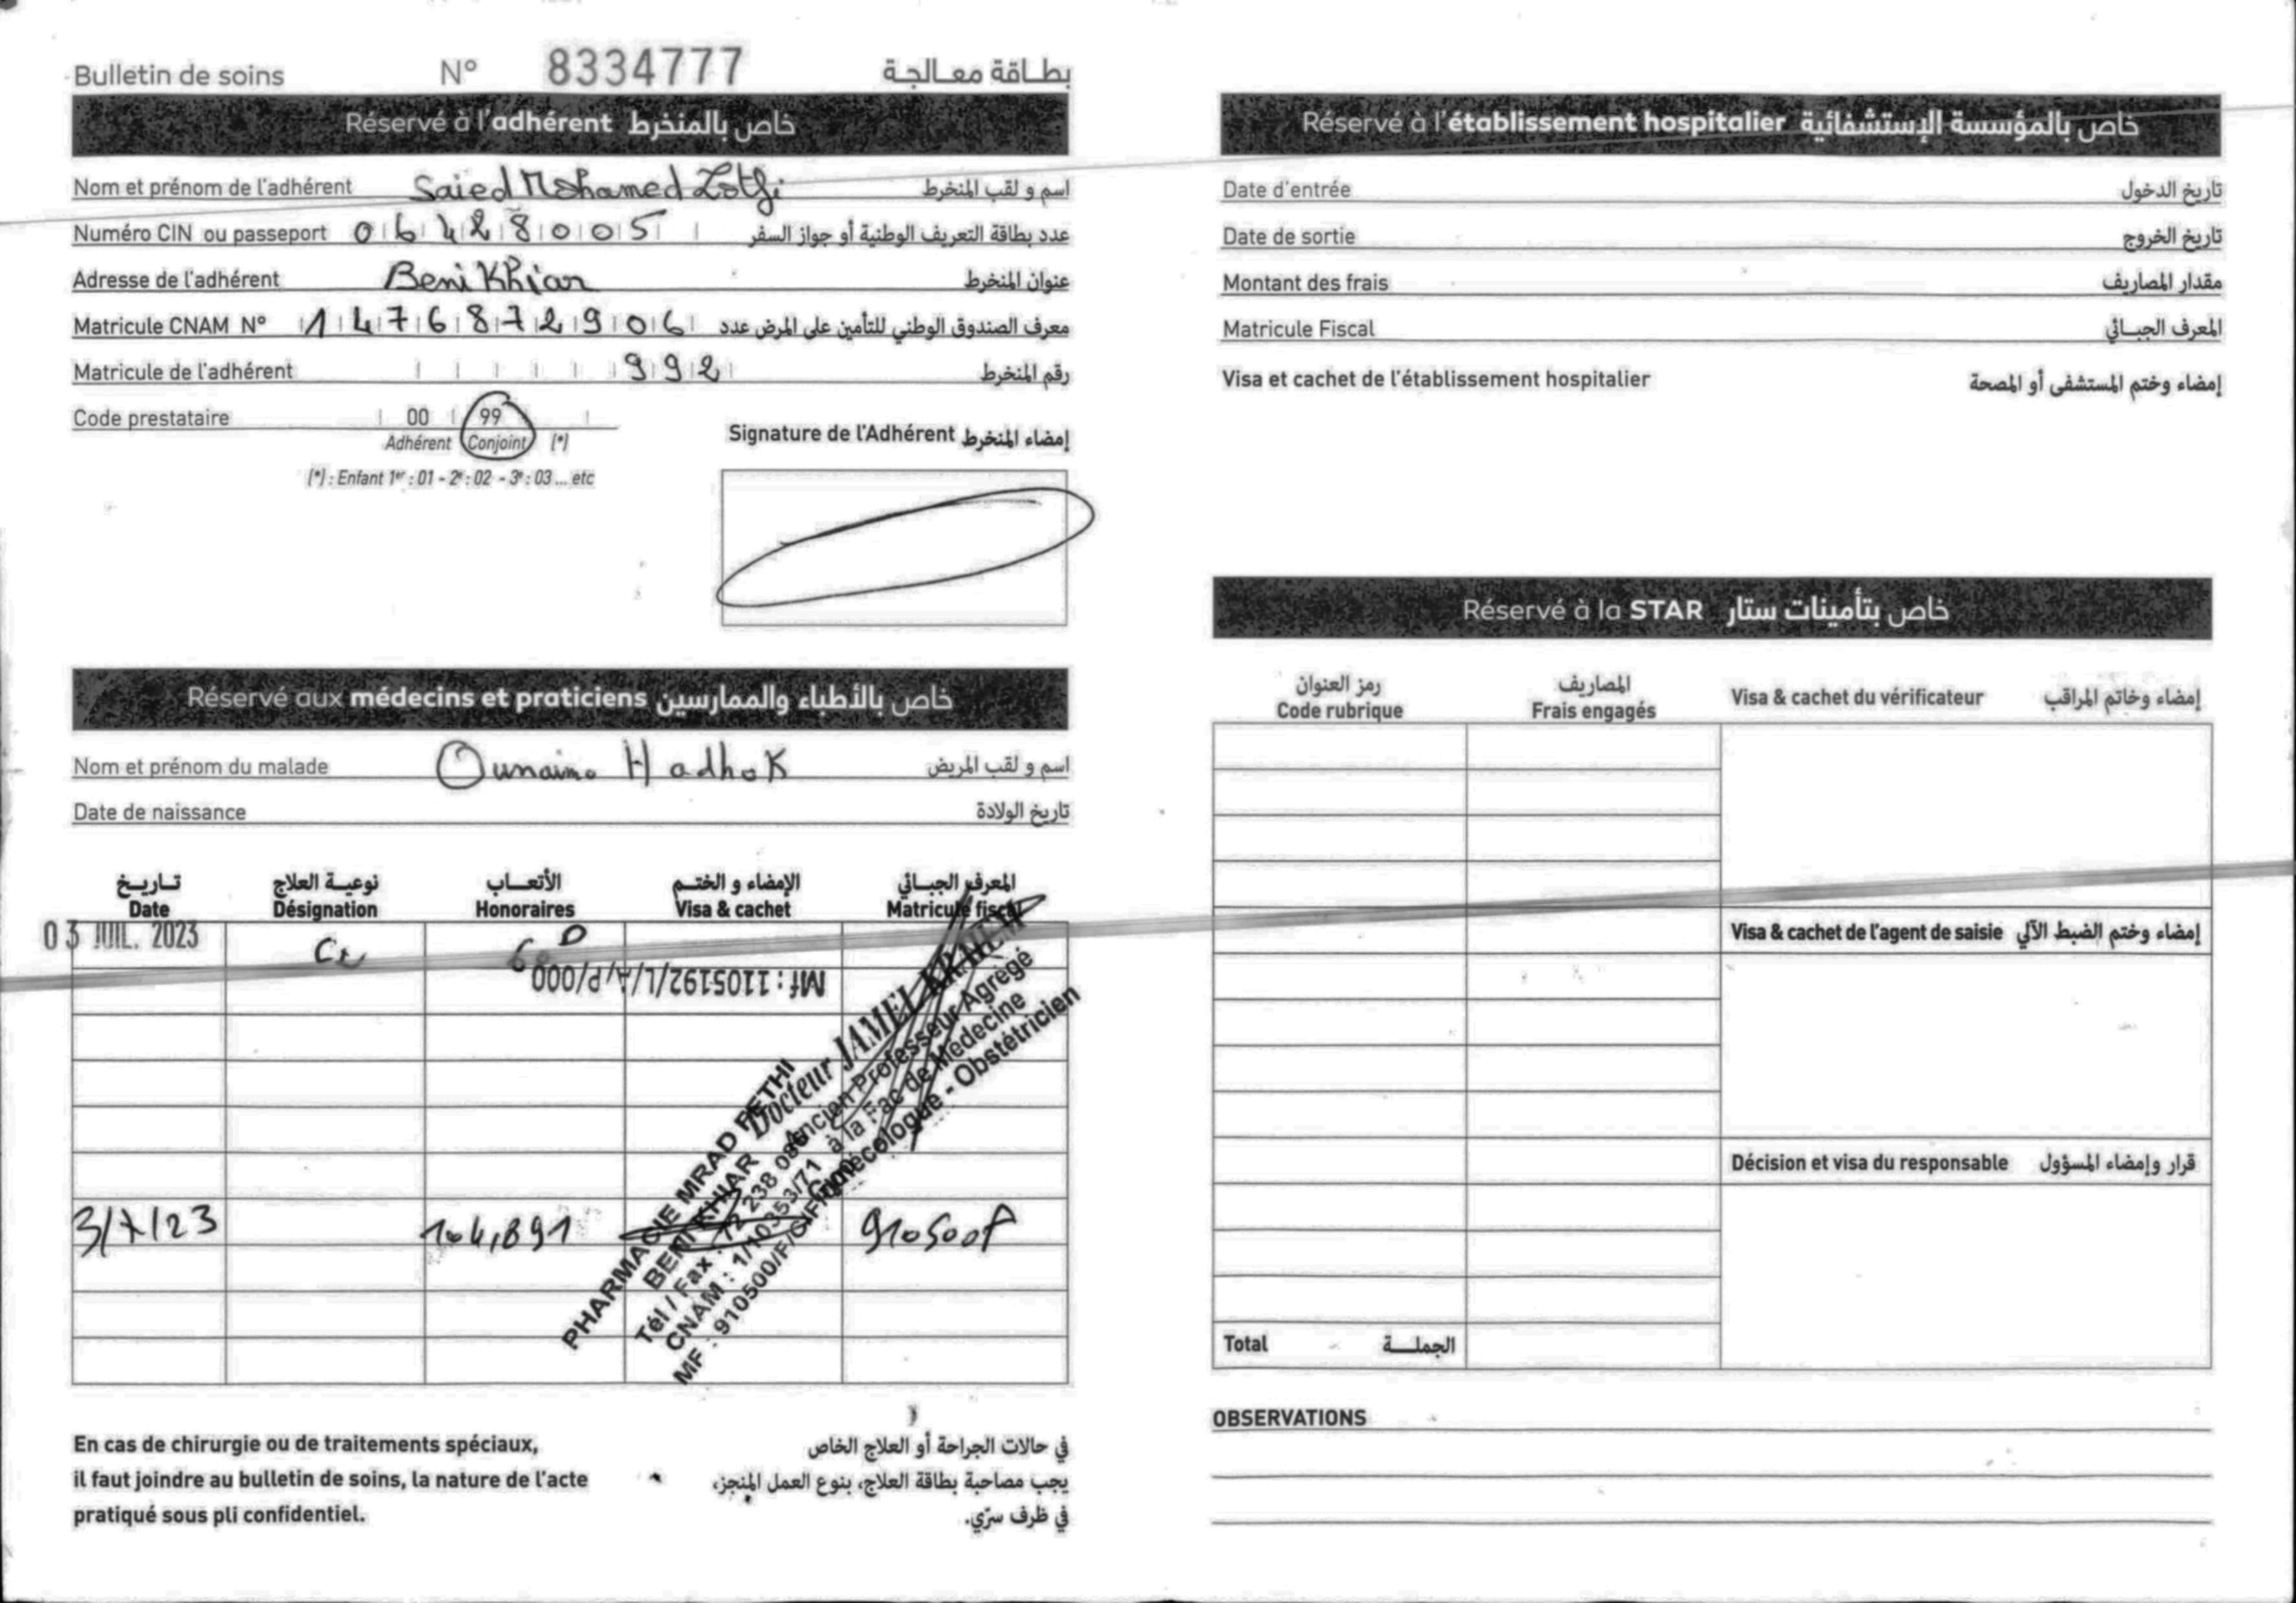 Bulletin de soins N° 8334777 بطاقة معالجة
Réservé à l'adhérent خاص بالمنخرط
Nom et prénom de l'adhérent Saied Mohamed Lotfi اسم و لقب المنخرط
Numéro CIN ou passeport 06428005 عدد بطاقة التعريف الوطنية أو جواز السفر
Adresse de l'adhérent Beni Khiar عنوان المنخرط
Matricule CNAM N° 1476872906 معرف الصندوق الوطني للتأمين على المرض عدد
Matricule de l'adhérent 992 رقم المنخرط
Code prestataire 00 99
Adhérent Conjoint (*)
(*) : Enfant 1er : 01 - 2e : 02 - 3e : 03 ... etc
Signature de l'Adhérent إمضاء المنخرط
Réservé aux médecins et praticiens خاص بالأطباء والممارسين
Nom et prénom du malade Oumaima Hadhok اسم و لقب المريض
Date de naissance تاريخ الولادة
تاريخ نوعية العلاج الأتعاب الإمضاء و الختم المعرف الجبائي
Date Désignation Honoraires Visa & cachet Matricule fiscal
03 JUIL. 2023 60 D
Mf : 1105192/L/A/P/000
Docteur JAMEL
Ancien Professeur Agrégé
à la Fac de Médecine
Gynécologue - Obstétricien
3/7/23 104,891 910500A
PHARMACIE MRAD FETHI
BENI KHIAR
Tél / Fax : 72 238 086
CNAM : 1/10353/71
MF : 910500/F
En cas de chirurgie ou de traitements spéciaux,
il faut joindre au bulletin de soins, la nature de l'acte
pratiqué sous pli confidentiel.
في حالات الجراحة أو العلاج الخاص
يجب مصاحبة بطاقة العلاج، بنوع العمل المنجز،
في ظرف سرّي.
Réservé à l'établissement hospitalier خاص بالمؤسسة الإستشفائية
Date d'entrée تاريخ الدخول
Date de sortie تاريخ الخروج
Montant des frais مقدار المصاريف
Matricule Fiscal المعرف الجبائي
Visa et cachet de l'établissement hospitalier إمضاء وختم المستشفى أو المصحة
Réservé à la STAR خاص بتأمينات ستار
رمز العنوان المصاريف
Code rubrique Frais engagés Visa & cachet du vérificateur إمضاء وخاتم المراقب
Visa & cachet de l'agent de saisie إمضاء وختم الضبط الآلي
Décision et visa du responsable قرار وإمضاء المسؤول
Total الجملة
OBSERVATIONS